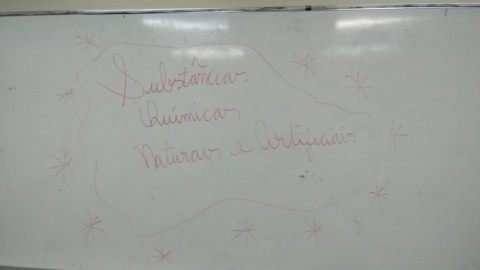 Substâncias
Químicas
Naturais e Artificiais